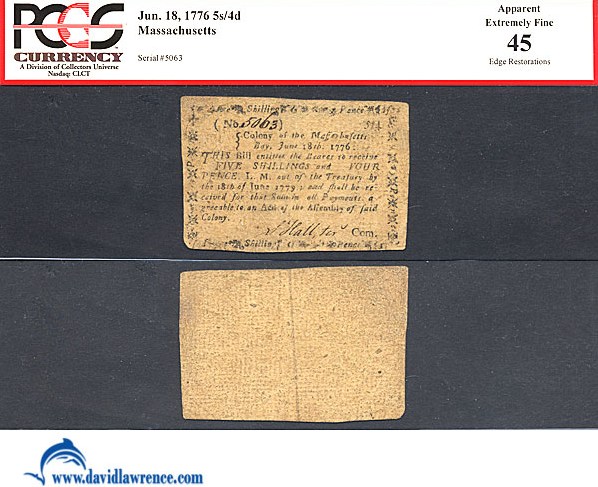 PCGS
CURRENCY
A Division of Collectors Universe
Nasdaq: CLCT
Jun. 18, 1776 5s/4d
Massachusetts
Serial #5063
Apparent
Extremely Fine
45
Edge Restorations
Shilling Pence
(No. 5063) 5s4
Colony of the Massachusetts
Bay, June 18th. 1776.
THIS Bill entitles the Bearer to receive
FIVE SHILLINGS and FOUR
PENCE, L. M. out of the Treasury by
the 18th of June 1779; and shall be re-
ceived for that Sum in all Payments, a-
greeable to an Act of the Assembly of said
Colony.
Hall Com.
Shilling Pence
www.davidlawrence.com